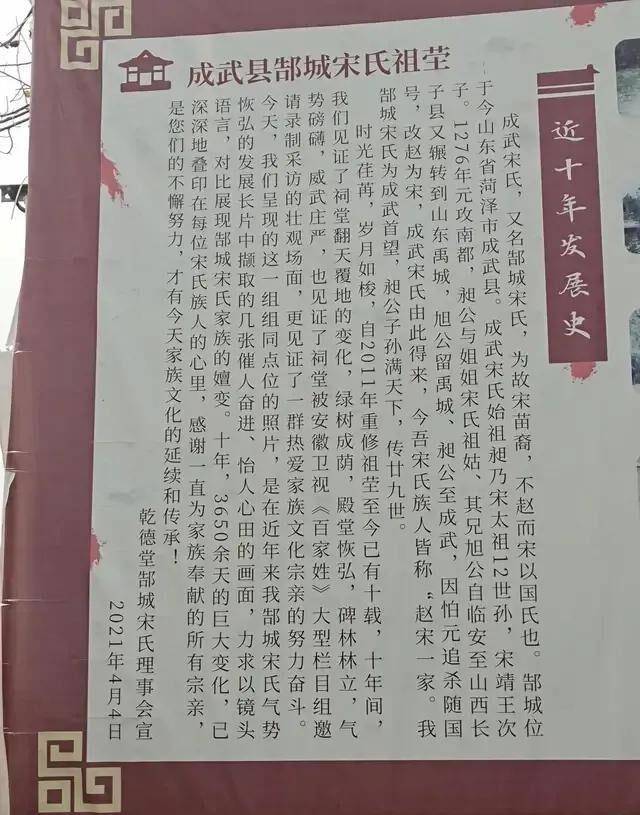 成武县郜城宋氏祖茔
近十年发展史
成武宋氏，又名郜城宋氏，为故宋苗裔，不赵而宋以国氏也。郜城位
于今山东省菏泽市成武县。成武宋氏始祖昶乃宋太祖12世孙，宋靖王次
子。1276年元攻南都，昶公与姐姐宋氏祖姑、其兄旭公自临安至山西长
子县又辗转到山东禹城，旭公留禹城、昶公至成武，因怕元追杀随国
号，改赵为宋，成武宋氏由此得来，今吾宋氏族人皆称“赵宋一家。我
郜城宋氏为成武首望，昶公子孙满天下，传廿九世。
时光荏苒，岁月如梭，自2011年重修祖茔至今已有十载，十年间，
我们见证了祠堂翻天覆地的变化，绿树成荫，殿堂恢弘，碑林林立，气
势磅礴，威武庄严，也见证了祠堂被安徽卫视《百家姓》大型栏目组邀
请录制采访的壮观场面，更见证了一群热爱家族文化宗亲的努力奋斗。
今天，我们呈现的这一组组同点位的照片，是在近年来我郜城宋氏气势
恢弘的发展长片中撷取的几张催人奋进、怡人心田的画面，力求以镜头
语言，对比展现郜城宋氏家族的嬗变。十年，3650余天的巨大变化，已
深深地叠印在每位宋氏族人的心里，感谢一直为家族奉献的所有宗亲，
是您们的不懈努力，才有今天家族文化的延续和传承！
乾德堂郜城宋氏理事会宣
2021年4月4日